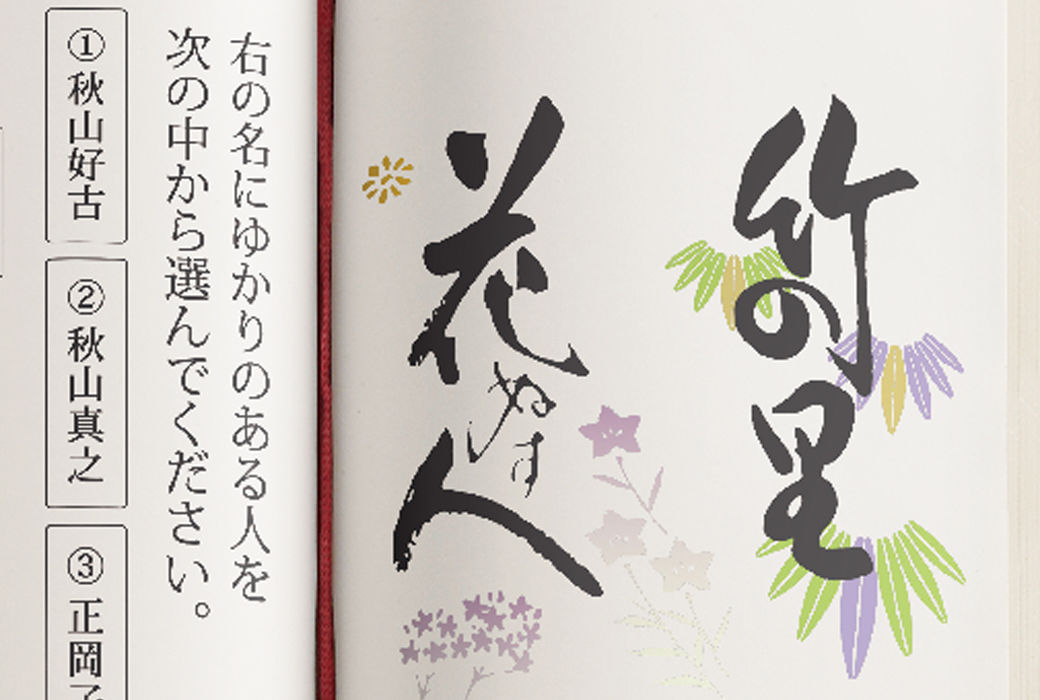 竹の里
花ぬす人
右の名にゆかりのある人を
次の中から選んでください。
①秋山好古
②秋山真之
③正岡子